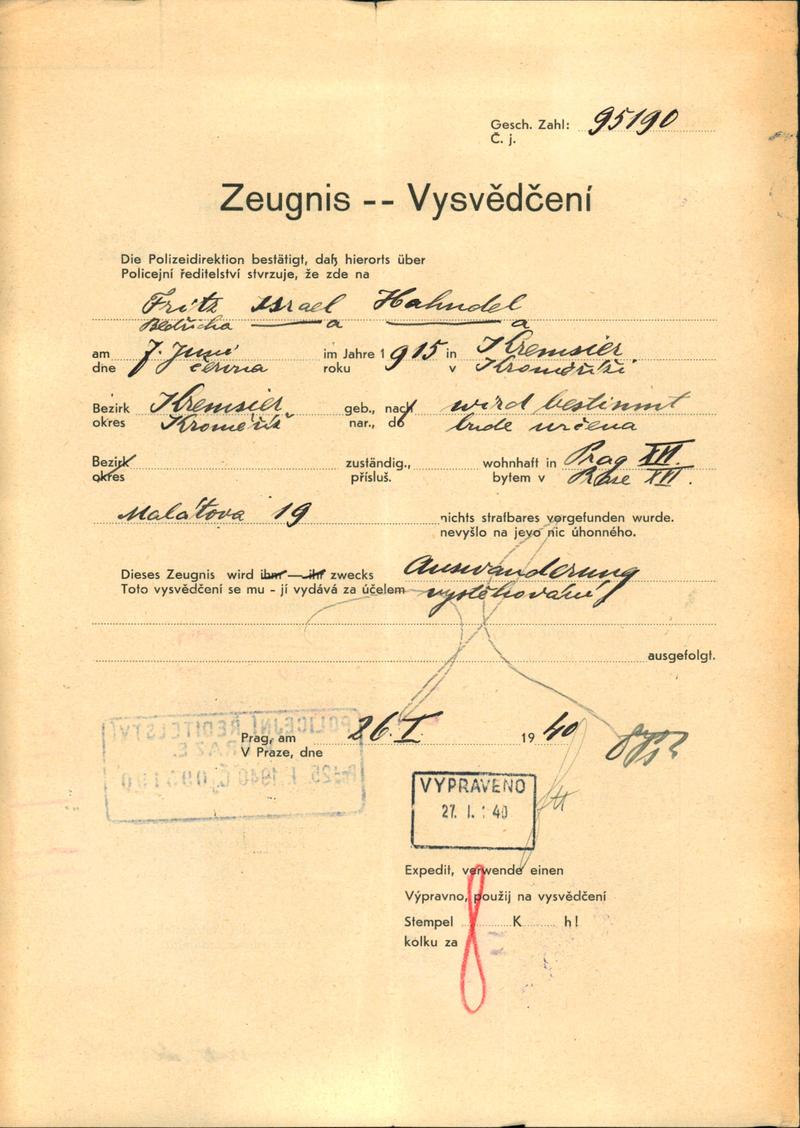 Gesch. Zahl: 95190
Č. j.
Zeugnis -- Vysvědčení
Die Polizeidirektion bestätigt, daß hierorts über
Policejní ředitelství stvrzuje, že zde na
Fritz Israel Hahndel
Bedřicha a a
am 7. Juni im Jahre 1915 in Kremsier
dne června roku v Kroměříži
Bezirk Kremsier geb., nach wird bestimmt
okres Kroměříž nar., do bude určena
Bezirk zuständig., wohnhaft in Prag XVI.
okres přísluš. bytem v Praze XVI.
Malátova 19 nichts strafbares vorgefunden wurde.
nevyšlo na jevo nic úhonného.
Dieses Zeugnis wird ihm — ihr zwecks Auswanderung
Toto vysvědčení se mu - jí vydává za účelem vystěhování
ausgefolgt.
POLICEJNÍ ŘEDITELSTVÍ
Prag, am 26. I. 1940
V Praze, dne
VYPRAVENO
27. I. 40
Expedit, verwende einen
Výpravno, použij na vysvědčení
Stempel K h!
kolku za